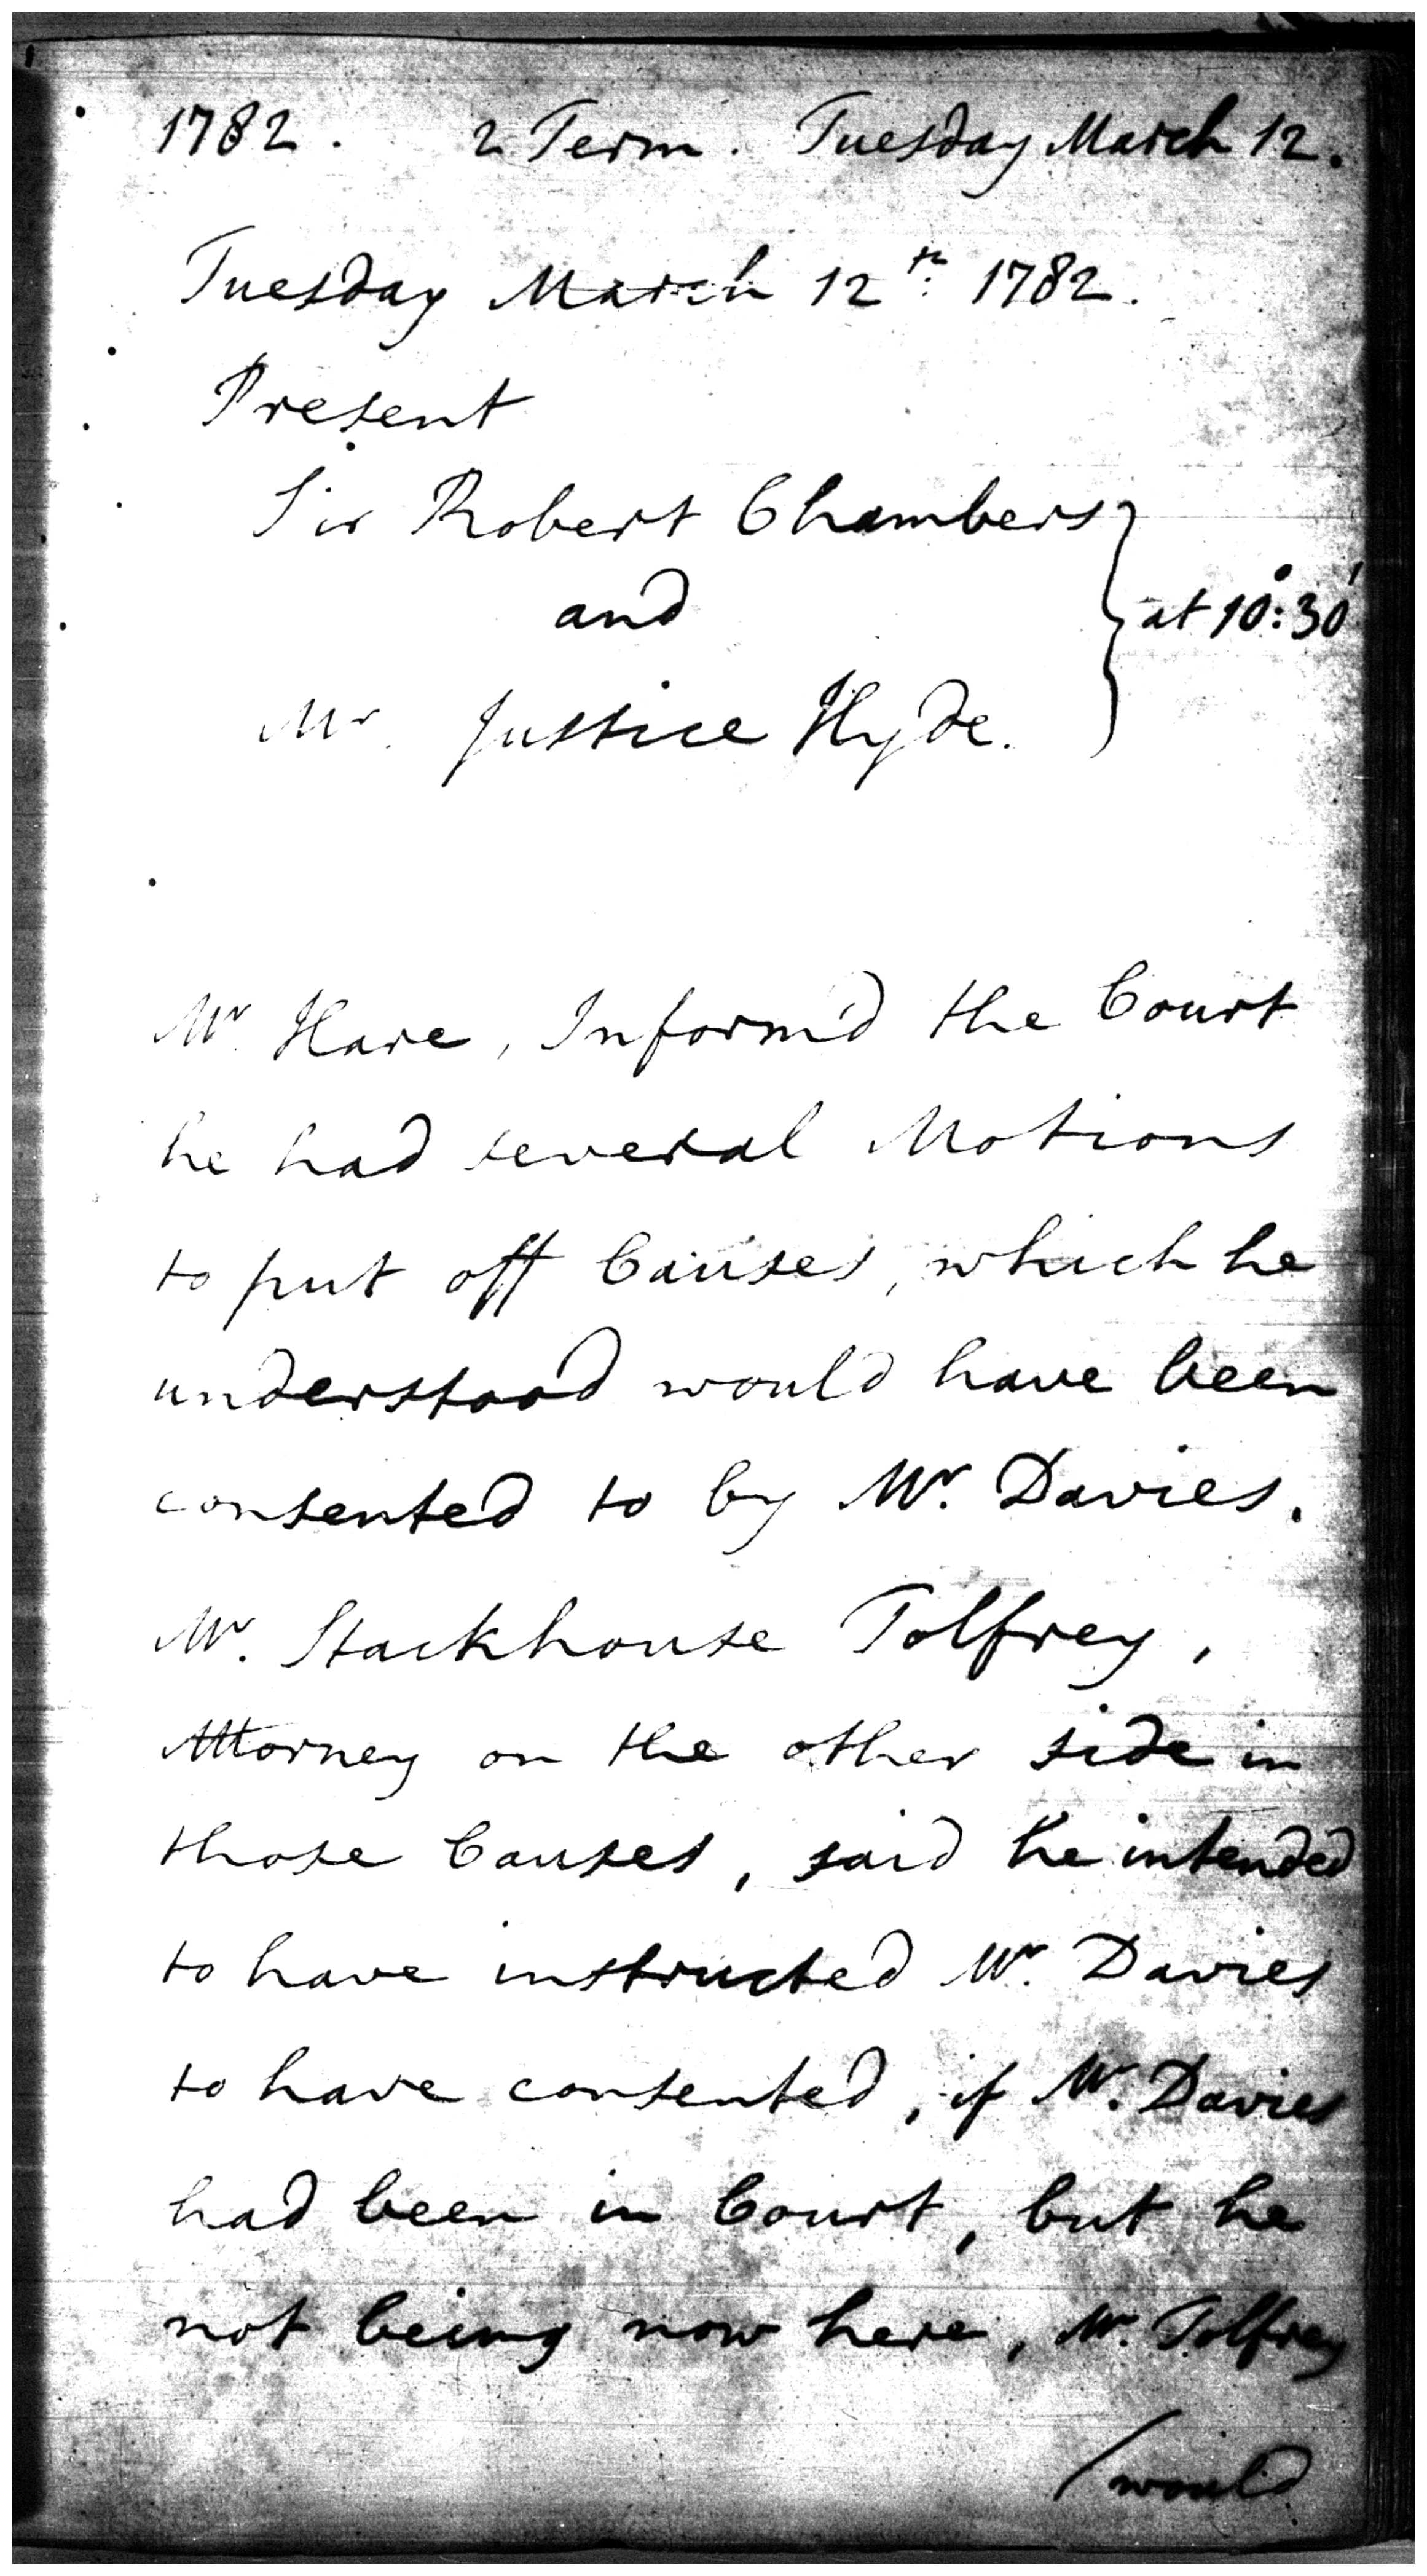 1782. 2 Term. Tuesday March 12.
Tuesday March 12th. 1782.
Present
Sir Robert Chambers
and
at 10°: 30'
Mr. Justice Hyde.
Mr. Hare, Inform'd the Court
he had several Motions
to put off Causes, which he
understood would have been
consented to by Mr. Davies.
Mr. Stackhouse Tolfrey,
Attorney on the other side in
those Causes, said he intended
to have instructed Mr. Davies
to have consented, if Mr. Davies
had been in Court, but he
not being now here, Mr. Tolfrey
/would